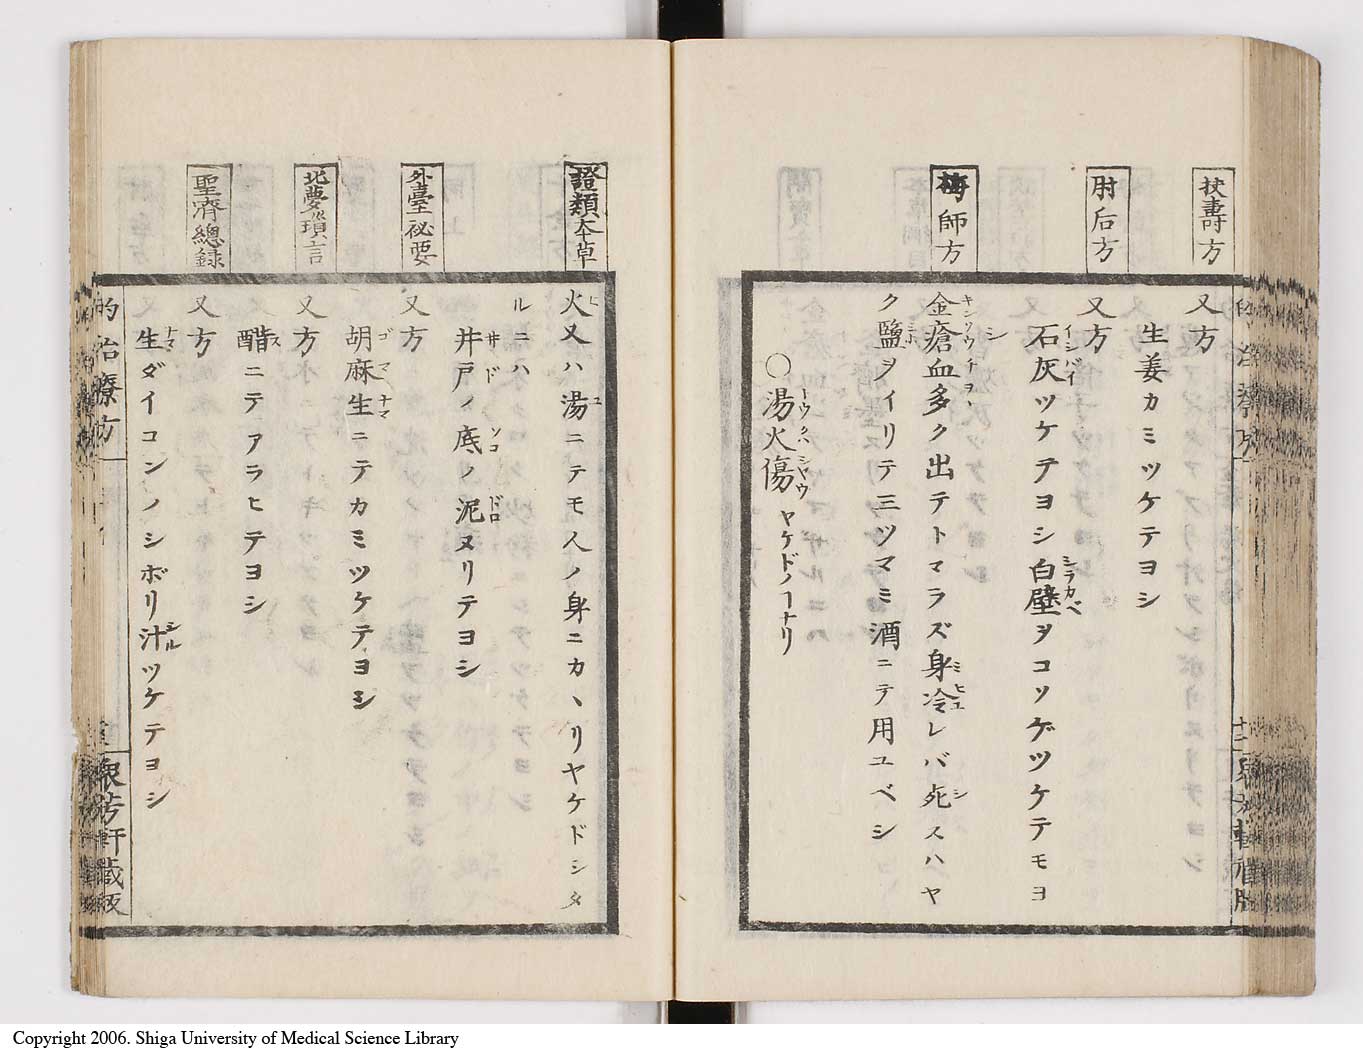 扶壽方
又方
生姜カミツケテヨシ
肘后方
又方
石灰ツケテヨシ白壁ヲコソゲツケテモヨ
イシバイ
シラカベ
シ
梅師方
金瘡血多ク出テトマラズ身冷レバ死スハヤ
キンソウチヲヽ
ミヒユ
シ
ク鹽ヲイリテ三ツマミ酒ニテ用ユベシ
○湯火傷ヤケドノヿナリ
トウクハシヤウ
證類本草
火又ハ湯ニテモ人ノ身ニカヽリヤケドシタ
ヒ
ユ
ルニハ
井戸ノ底ノ泥ヌリテヨシ
井ド
ソコ
ドロ
外臺祕要
又方
胡麻生ニテカミツケテヨシ
ゴマナマ
北夢瑣言
又方
醋ニテアラヒテヨシ
ス
聖濟總録
又方
生ダイコンノシボリ汁ツケテヨシ
ナマ
シル
的治療方
衆芳軒藏版
Copyright 2006. Shiga University of Medical Science Library